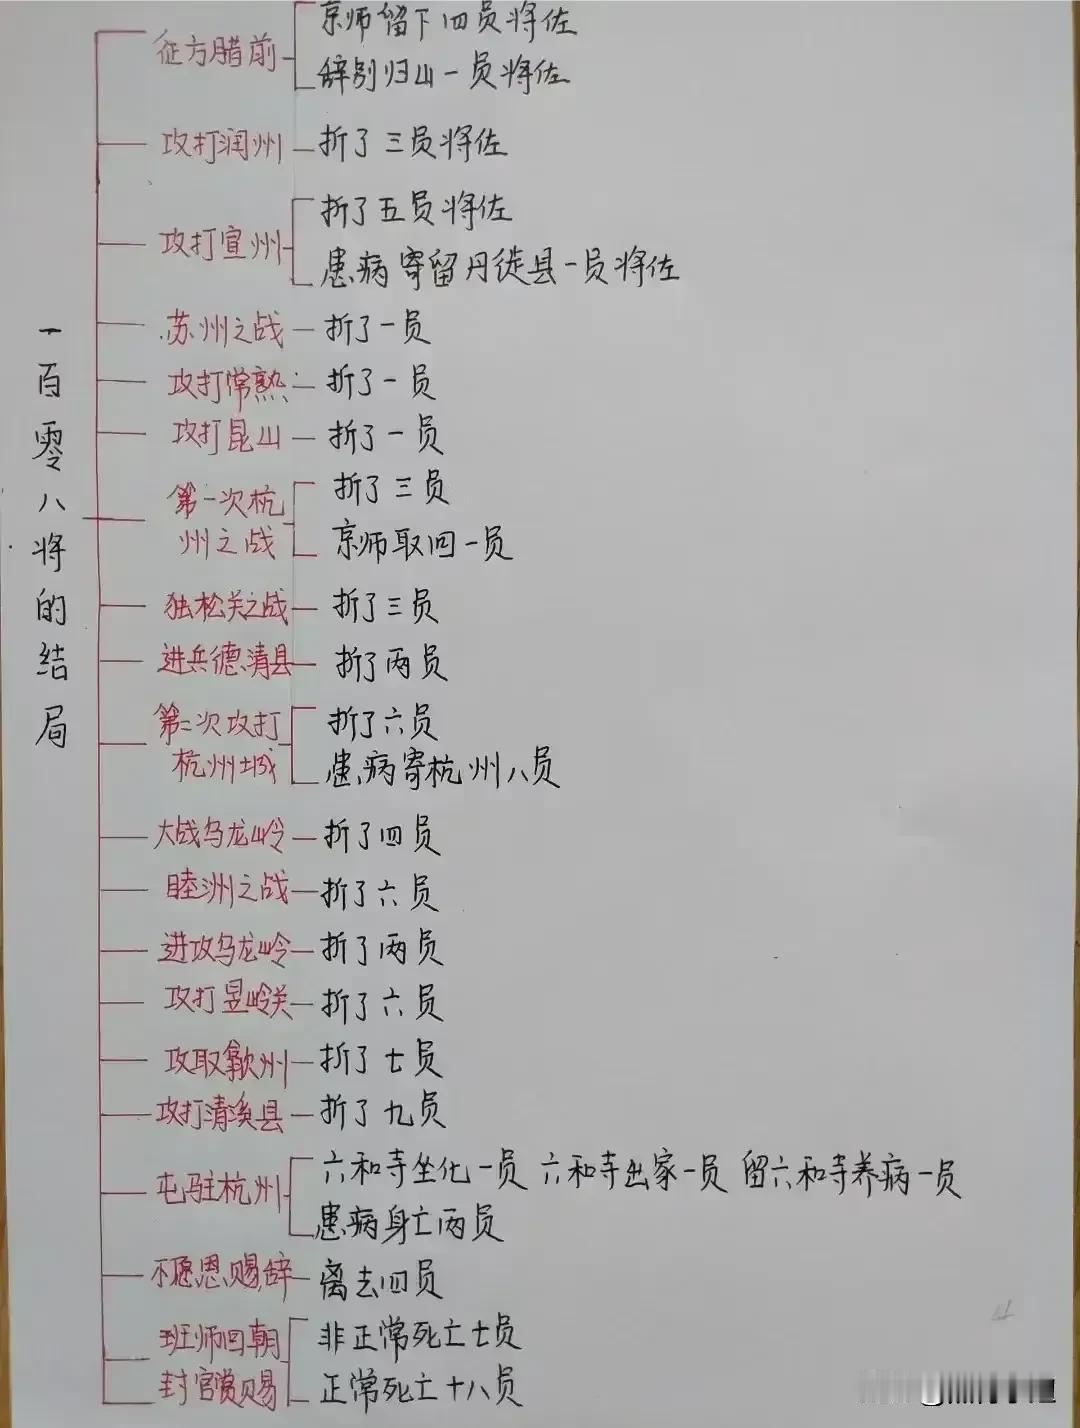 一百零八将的结局
征方腊前
京师留下四员将佐
辞别归山一员将佐
攻打润州
折了三员将佐
攻打宣州
折了五员将佐
患病寄留丹徒县一员将佐
苏州之战
折了一员
攻打常熟
折了一员
攻打昆山
折了一员
第一次杭
州之战
折了三员
京师取回一员
独松关之战
折了三员
进兵德清县
折了两员
第二次攻打
杭州城
折了六员
患病寄杭州八员
大战乌龙岭
折了四员
睦洲之战
折了六员
进攻乌龙岭
折了两员
攻打昱岭关
折了六员
攻取歙州
折了七员
攻打清溪县
折了九员
屯驻杭州
六和寺坐化一员 六和寺出家一员 留六和寺养病一员
患病身亡两员
不愿恩赐,辞
离去四员
班师回朝
封官赏赐
非正常死亡七员
正常死亡十八员